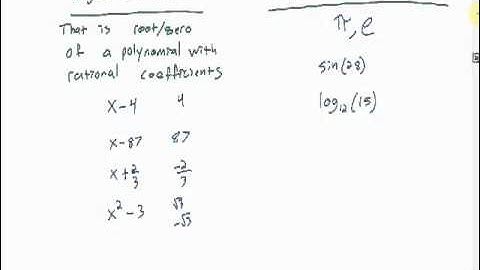 That is root/zero
of a polynomial with
rational coefficients
x-4 4
x-87 87
x+2/3 -2/3
x²-3 √3
-√3
π, e
sin(28)
log₁₂(15)